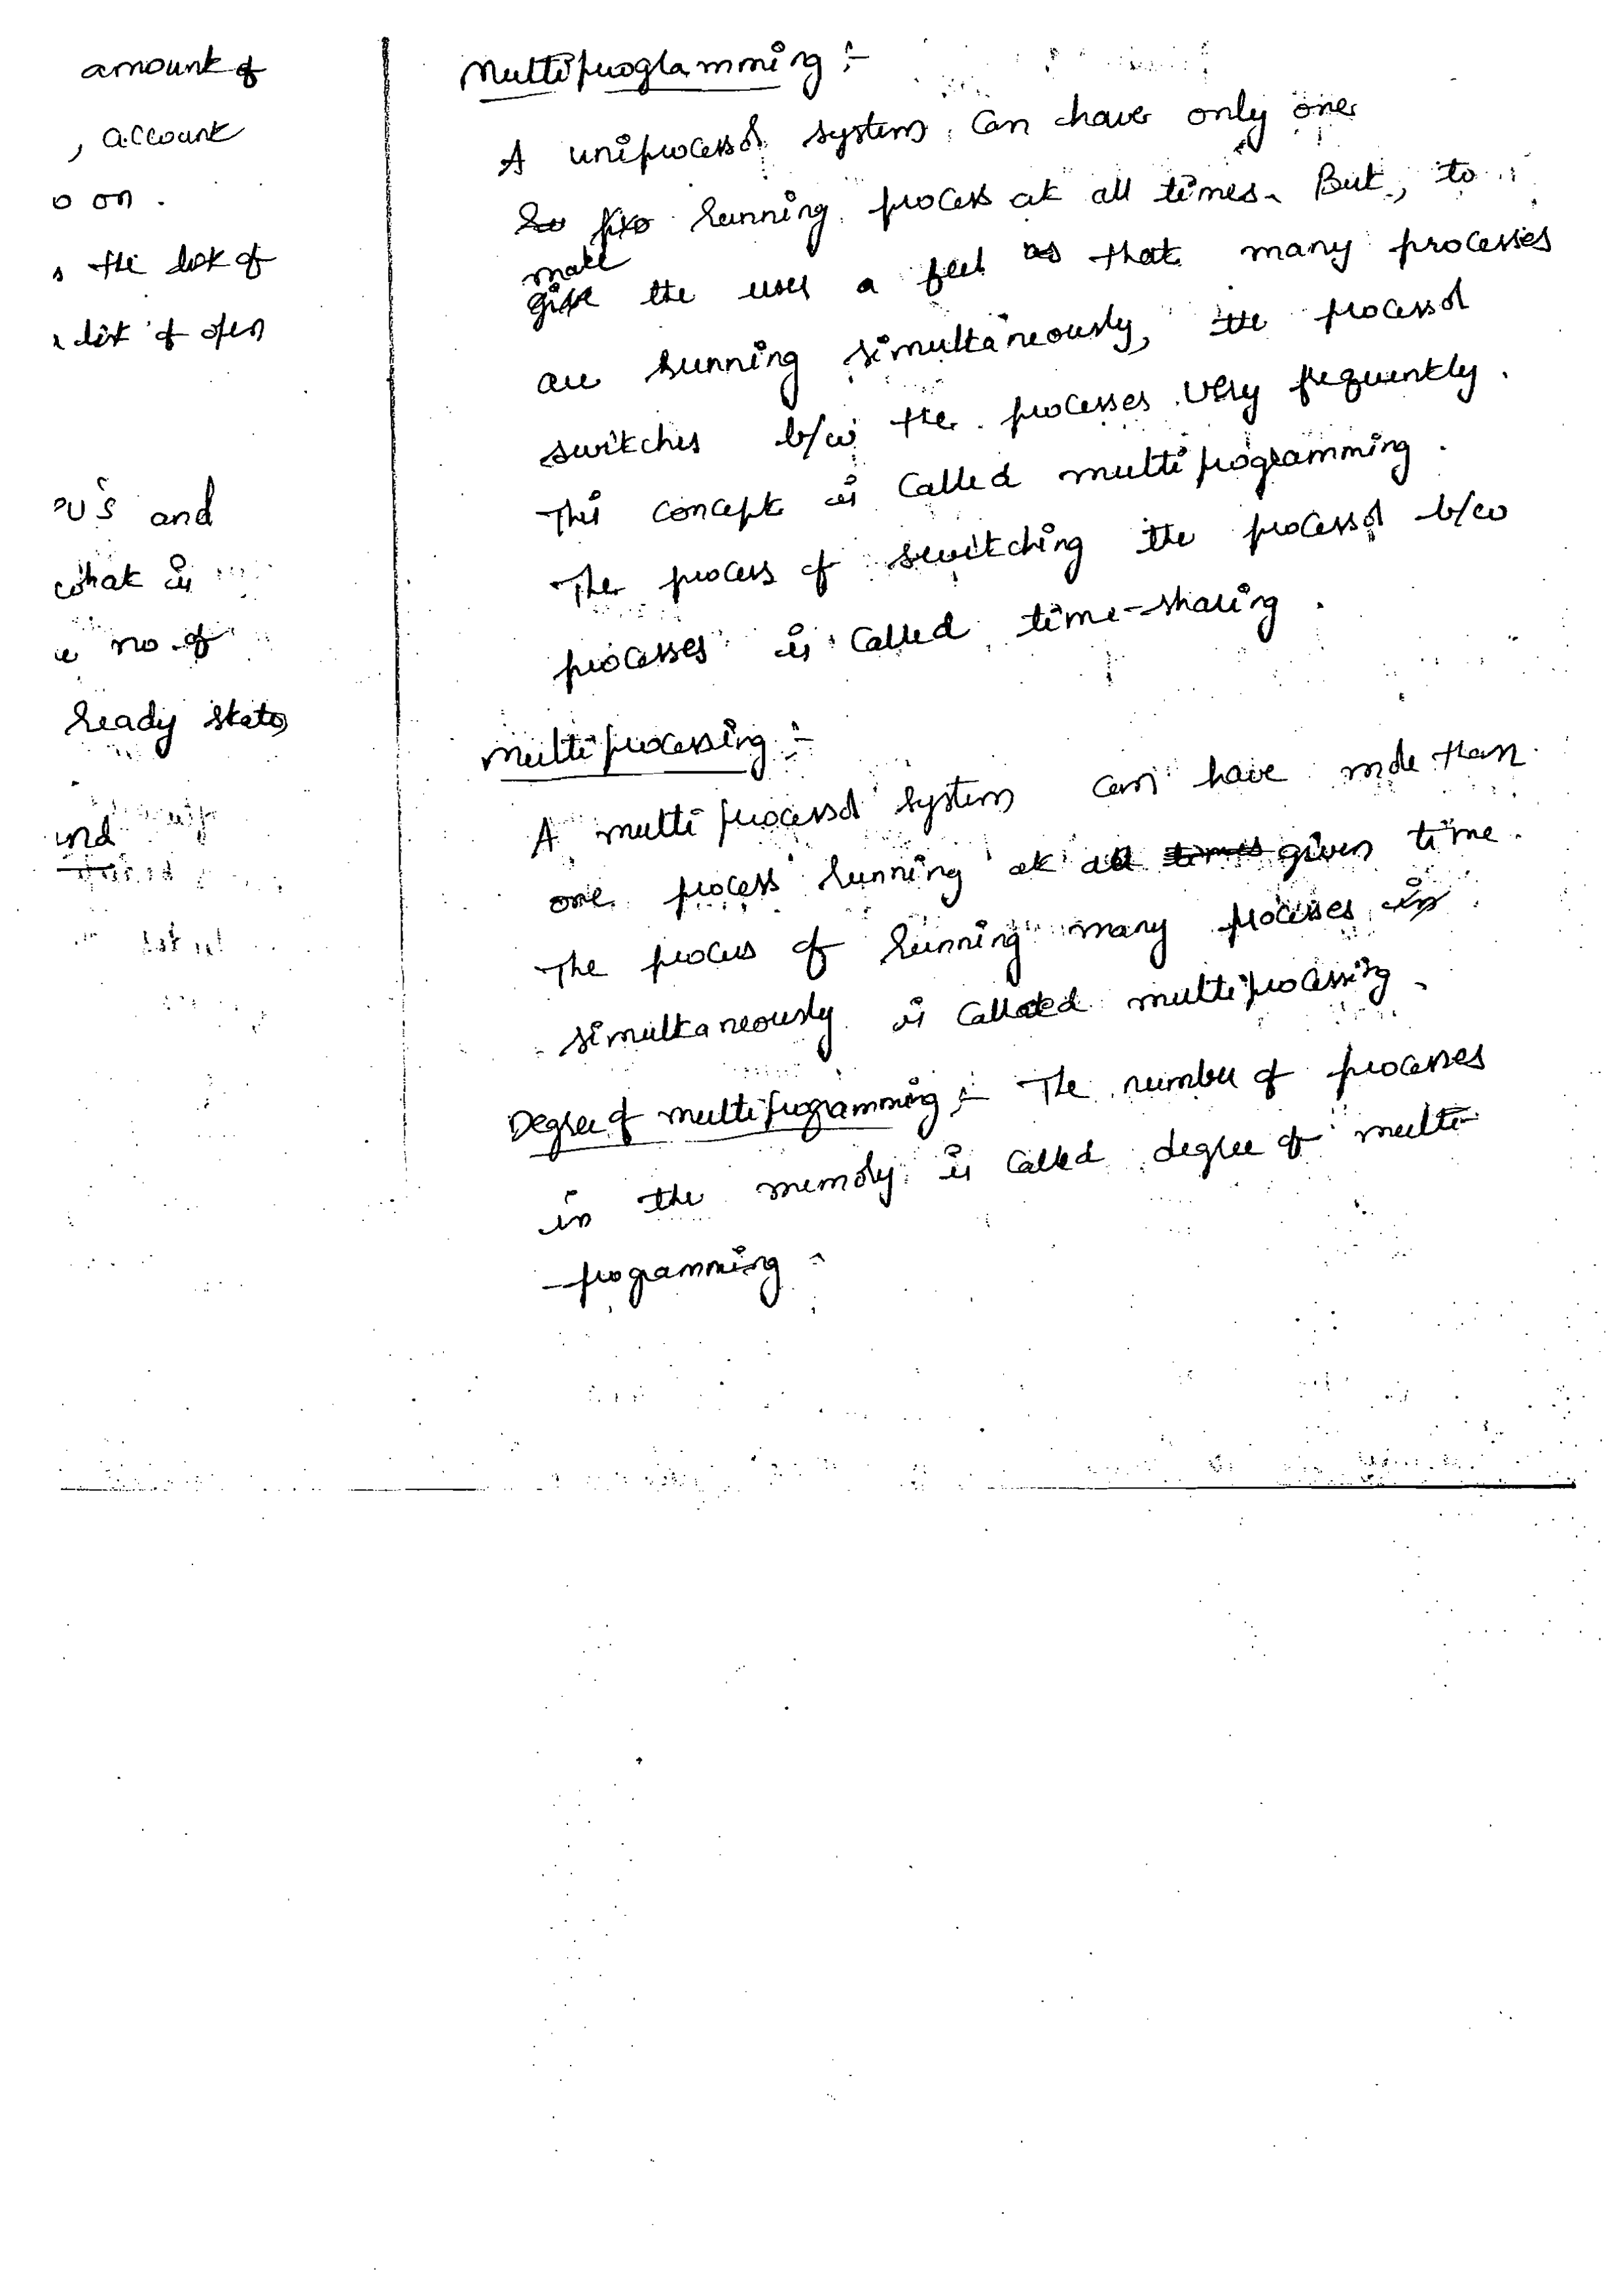 amount of
, account
o on.
s the list of
list of open
PU's and
what is
no. of
ready state
und
Multiprogramming :-
A uniprocessor system can have only one
So pro running process at all times. But, to
make
give the user a feel as that many processes
are running simultaneously, the processor
switches b/w the processes very frequently.
This concept is called multiprogramming.
The process of switching the processor b/w
processes is called time-sharing.
Multiprocessing :-
A multiprocessor system can have more than
one process running at all times given time.
The process of running many processes in
simultaneously is called multiprocessing.
Degree of multiprogramming :- The number of processes
in the memory is called degree of multi-
-programming.